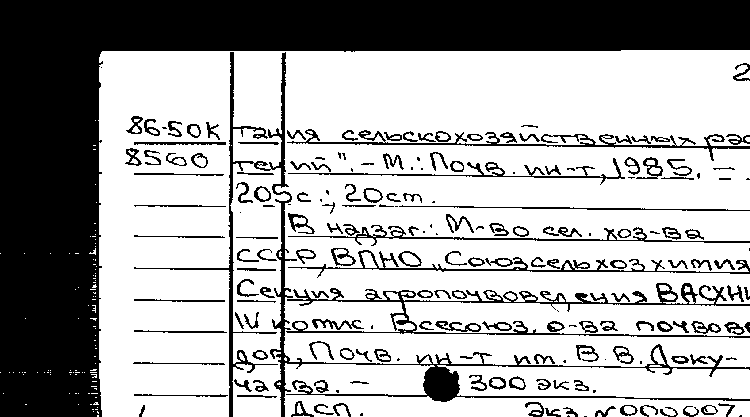 2
86-50К тания сельскохозяйственных рас
8560 тений". - М.: Почв. ин-т, 1985. -
205с.; 20ст.
В надзаг.: М-во сел. хоз-ва
СССР, ВПНО „Союзсельхозхимия
Секция агропочвоведения ВАСХНИ
IV комис. Всесоюз. о-ва почвове
дов, Почв. ин-т им. В.В. Доку-
чаева. - 300 экз.
Дсп. Экз. №000007.